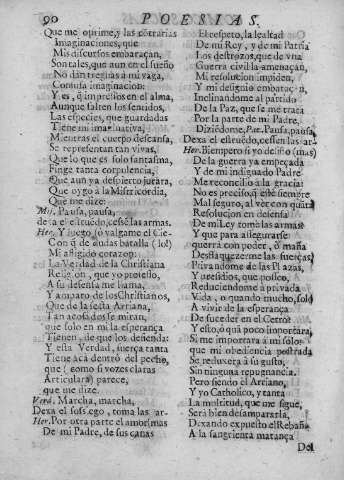 90 POESIAS.
Que me oprime, y las cõtrarias
Imaginaciones, que
Mis discursos embaraçan,
Son tales, que aun en el sueño
No dan treguas à mi vaga,
Confusa imaginacion:
Y es, q̃ impressos en el alma,
Aunque falten los sentidos,
Las especies, que guardadas
Tiene mi imaginativa,
Mientras el cuerpo descansa,
Se representan tan vivas,
Que lo que es solo fantasma,
Finge tanta corpulencia,
Que aun ya despierto jurára,
Que oygo à la Misericordia,
Que me dize:
Mis. Pausa, pausa,
dexa el estruẽdo, cesse las armas.
Her. Y luego (ò valgame el Cielo
Con q̃ de dudas batalla
Mi afligido coraçon!)
La Verdad de la Christiana
Religion, que yo professo,
A su defensa me llama,
Y amparo de los Christianos,
Que de la secta Arriana,
Tan acosados se miran,
que solo en mi la esperança
Tienen, de que los defienda:
Y esta Verdad, fuerça tanta
Tiene acà dentro del pecho,
que (como si vozes claras
Articulára) parece,
que me dize.
Verd. Marcha, marcha,
Dexa el sossiego, toma las ar-
Her. Por otra parte el amor (mas
De mi Padre, de sus canas
El respeto, la lealtad
De mi Rey, y de mi Patria
Los destrozos, que de vna
Guerra civil la amenaçan,
Mi resolucion impiden,
Y mi designio embaraçan,
Inclinandome al partido
De la Paz, que se me trata
Por la parte de mi Padre,
Diziẽdome, Paz. Pausa, pausa,
Dexa el estruẽdo, cessen las ar-
Her. Bien pero si yo desisto (mas)
De la guerra ya empeçada
Y de mi indignado Padre
Me reconcilio à la gracia:
No es preciso, q̃ esté siempre
Mal seguro, al ver con quãta
Resolucion en defensa
De mi Ley tomè las armas?
Y que para assegurarse
querrà con poder, ò maña
Desflaquezerme las fuerças,
Privandome de las Plazas,
Y presidios, que posseo,
Reduciendome à privada
Vida, ò quando mucho, solo
A vivir de la esperança
De suceder en el Cetro?
Y esto, ò quã poco importára,
Si me importára à mi solo:
que mi obediencia postrada
Se resolverà à su gusto,
Sin ninguna repugnancia.
Pero siendo èl Arriano,
Y yo Catholico, y tanta
La multitud, que me sigue,
Serà bien desampararla,
Dexando expuesto el Rebaño
A la sangrienta matança
Del